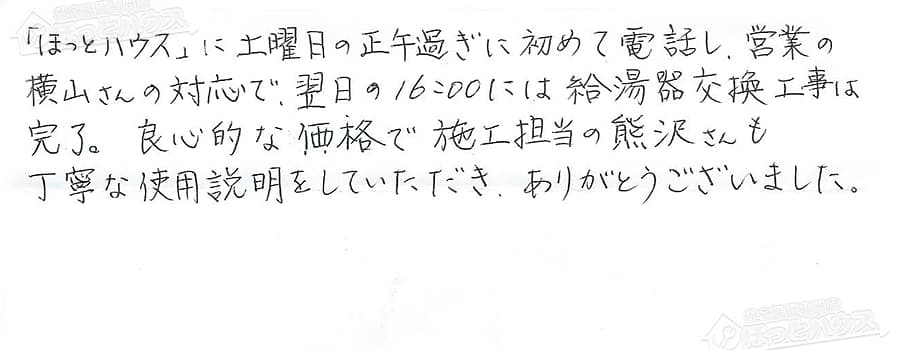 「ほっとハウス」に土曜日の正午過ぎに初めて電話し、営業の
横山さんの対応で、翌日の16:00には給湯器交換工事は
完了。良心的な価格で施工担当の熊沢さんも
丁寧な使用説明をしていただき、ありがとうございました。
ほっとハウス